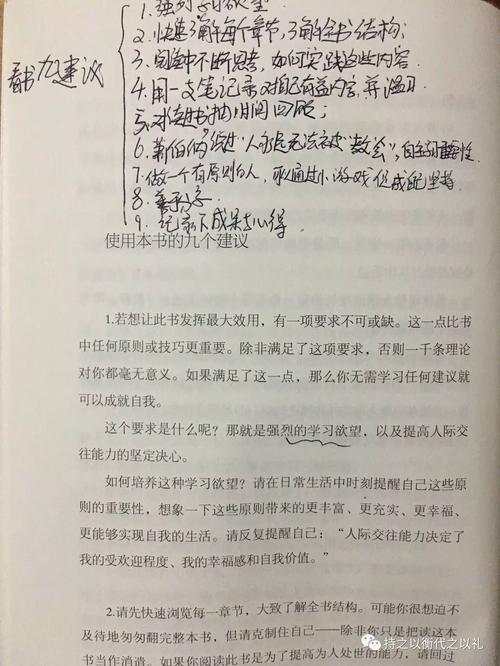 1.强烈学习欲望
2.快速了解每个章节,了解全书结构;
3.阅读中不断思考,如何实践这些内容.
看书九建议
4.用一支笔记录对自己有益内容,并温习.
5.对这本书抽时间回顾;
6.萧伯纳说过“人永远无法被‘教会’”,自主的重要性.
7.做一个有原则的人,可以通过小游戏促成配坚持.
8.
9.记录下成果与心得.
使用本书的九个建议
1.若想让此书发挥最大效用,有一项要求不可或缺。这一点比书
中任何原则或技巧更重要。除非满足了这项要求,否则一千条理论
对你都毫无意义。如果满足了这一点,那么你无需学习任何建议就
可以成就自我。
这个要求是什么呢?那就是强烈的学习欲望,以及提高人际交
往能力的坚定决心。
如何培养这种学习欲望?请在日常生活中时刻提醒自己这些原
则的重要性,想象一下这些原则带来的更丰富、更充实、更幸福、
更能够实现自我的生活。请反复提醒自己:“人际交往能力决定了
我的受欢迎程度、我的幸福感和自我价值。”
2.请先快速浏览每一章节,大致了解全书结构。可能你很想迫不
及待地匆匆翻完整本书,但请克制住自己——除非你只是把读这本
书当作消遣。如果你阅读此书是为了提高为人处世的能力,请回过
持之以衡代之以礼